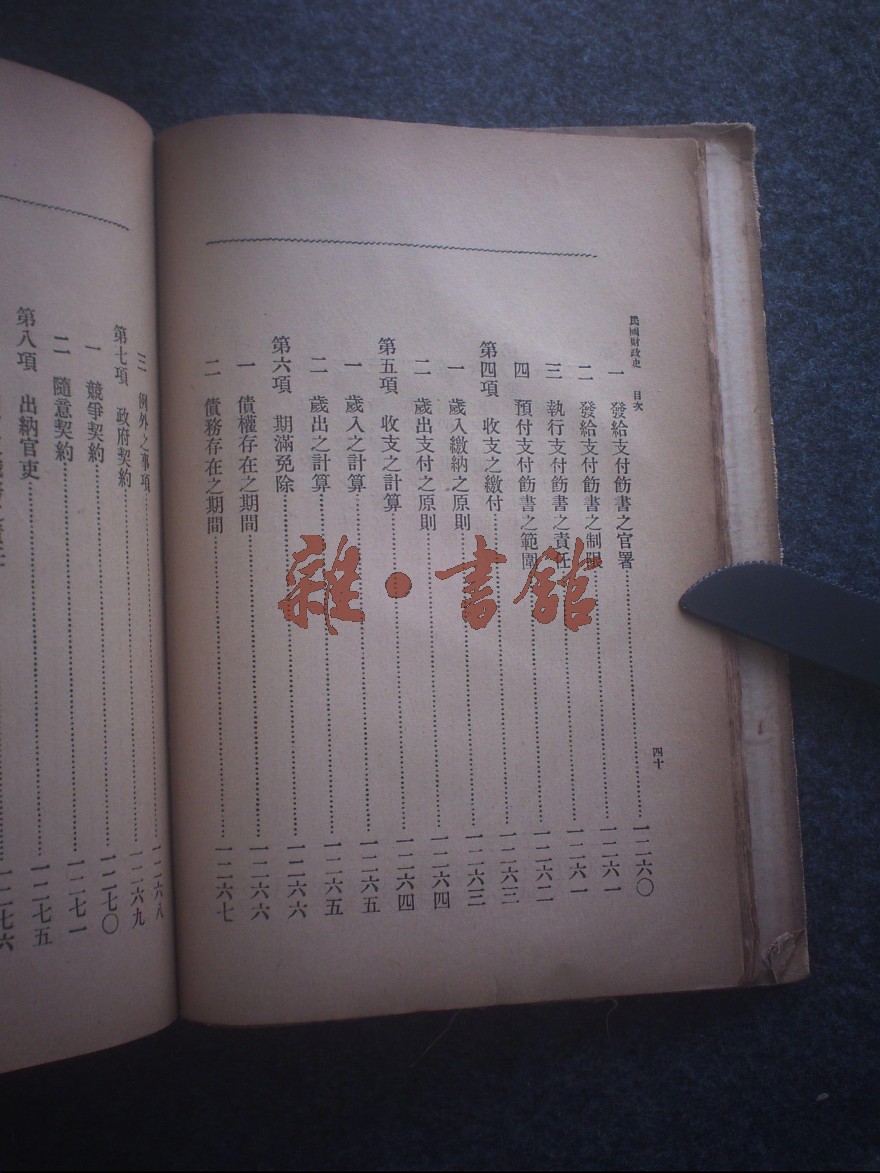 民國財政史 目次 四十
一 發給支付飭書之官署……一二六〇
二 發給支付飭書之制限……一二六一
三 執行支付飭書之責任……一二六一
四 預付支付飭書之範圍……一二六二
第四項 收支之繳付……一二六三
一 歲入繳納之原則……一二六三
二 歲出支付之原則……一二六四
第五項 收支之計算……一二六四
一 歲入之計算……一二六五
二 歲出之計算……一二六五
第六項 期滿免除……一二六六
一 債權存在之期間……一二六六
二 債務存在之期間……一二六七
三 例外之事項……一二六八
第七項 政府契約……一二六九
一 競爭契約……一二七〇
二 隨意契約……一二七一
第八項 出納官吏……一二七五
一二七六
雜·書館